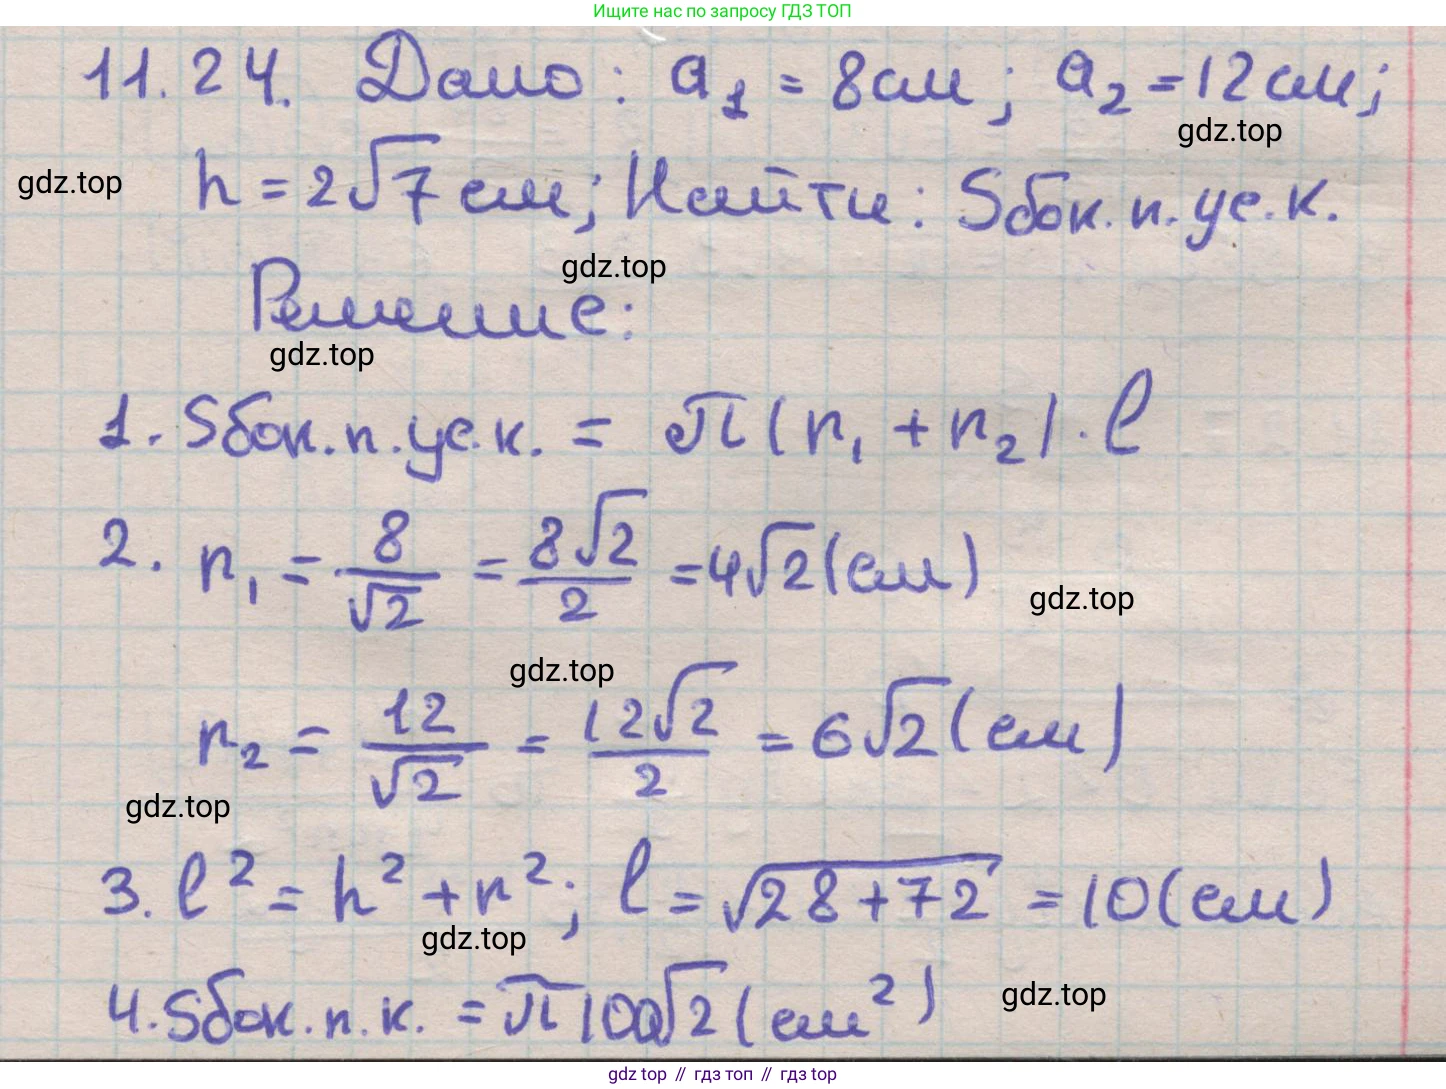 Ищите нас по запросу ГДЗ ТОП
11.24. Дано: a₁ = 8см; a₂ = 12см;
gdz.top
gdz.top h = 2√7 см; Найти: Sбок.п.ус.к.
gdz.top
Решение:
gdz.top
1. Sбок.п.ус.к. = π(r₁ + r₂)·l
2. r₁ = 8/√2 = 8√2/2 = 4√2(см)
gdz.top
gdz.top
r₂ = 12/√2 = 12√2/2 = 6√2(см)
gdz.top
3. l² = h² + r²; l = √28+72 = 10(см)
gdz.top
gdz.top
4. Sбок.п.к. = π100√2(см²)
gdz top // гдз топ // гдз top